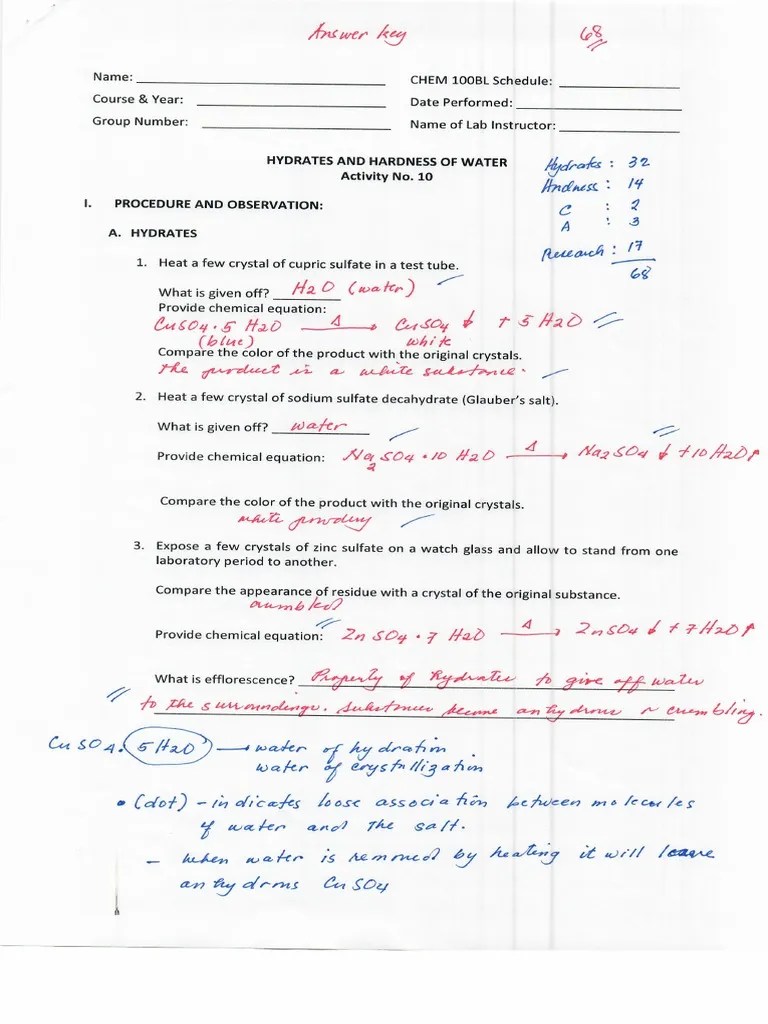 Answer key 68
Name: CHEM 100BL Schedule:
Course & Year: Date Performed:
Group Number: Name of Lab Instructor:
HYDRATES AND HARDNESS OF WATER
Activity No. 10
Hydrates : 32
Hardness : 14
C : 2
A : 3
Research : 17
68
I. PROCEDURE AND OBSERVATION:
A. HYDRATES
1. Heat a few crystal of cupric sulfate in a test tube.
What is given off? H2O (water)
Provide chemical equation:
CuSO4 · 5 H2O —Δ→ CuSO4 ↓ + 5 H2O
(blue) white
Compare the color of the product with the original crystals.
The product is a white substance.
2. Heat a few crystal of sodium sulfate decahydrate (Glauber's salt).
What is given off? water
Provide chemical equation: Na2SO4 · 10 H2O —Δ→ Na2SO4 ↓ + 10 H2O↑
Compare the color of the product with the original crystals.
white powdery
3. Expose a few crystals of zinc sulfate on a watch glass and allow to stand from one
laboratory period to another.
Compare the appearance of residue with a crystal of the original substance.
crumbled
Provide chemical equation: ZnSO4 · 7 H2O —Δ→ ZnSO4 ↓ + 7 H2O↑
What is efflorescence? Property of hydrates to give off water
to the surroundings. Substances become anhydrous crumbling.
CuSO4. 5H2O → water of hydration
water of crystallization
• (dot) - indicates loose association between molecules
of water and the salt.
- when water is removed by heating it will leave
anhydrous CuSO4